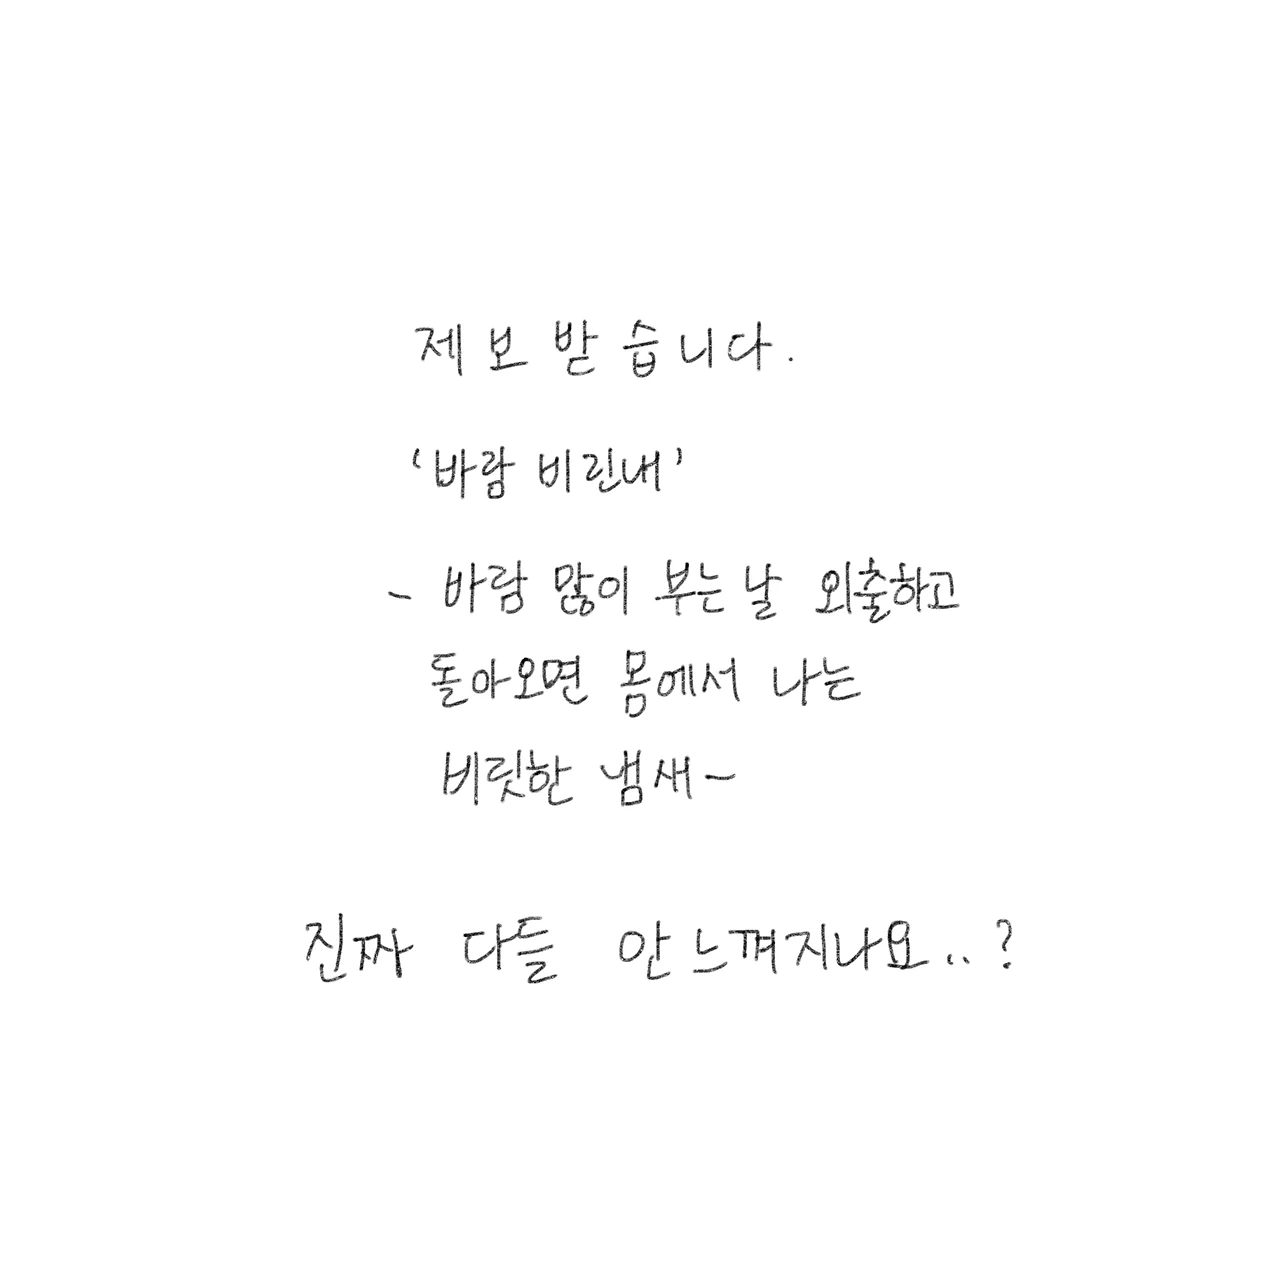 제보받습니다.
‘바람 비린내’
- 바람 많이 부는 날 외출하고
돌아오면 몸에서 나는
비릿한 냄새-
진짜 다들 안느껴지나요..?